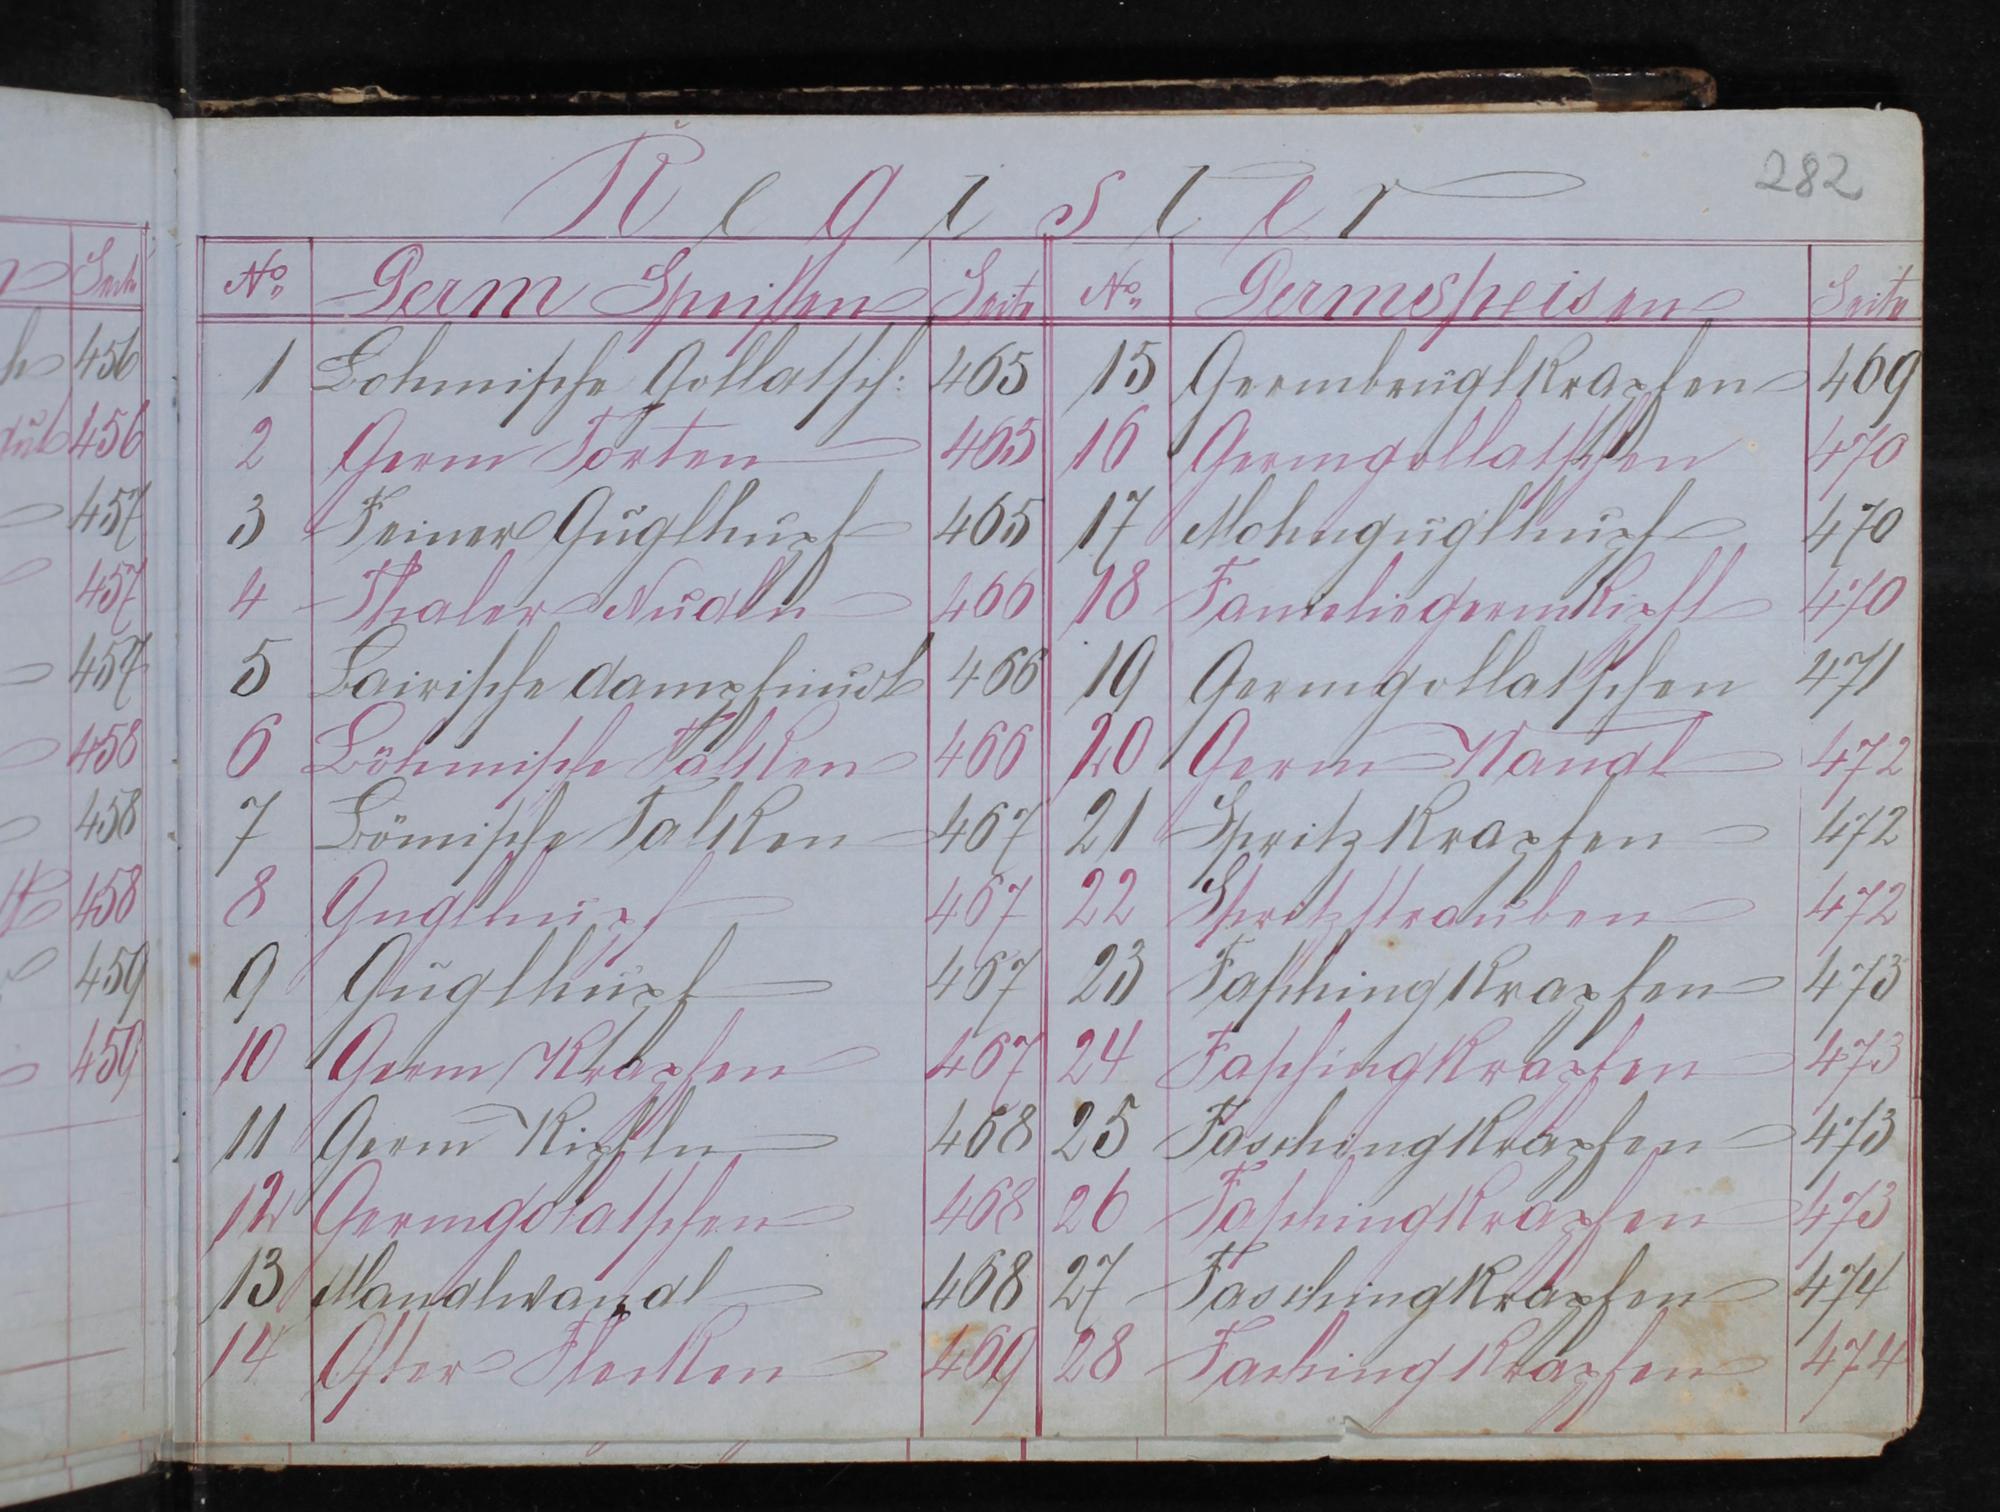 Register
282
No Germ Speissen Seite No Germspeisen Seite
1 Bohmische Gollatsch: 465 15 Germbruglkrapfen 469
2 Germ Torten 465 16 Germgollatschen 470
3 Feiner Guglhupf 465 17 Mohnguglhupf 470
4 Thaler Nudln 466 18 Fameliegermkipfl 470
5 Bairische dampfnudl 466 19 Germgollatschen 471
6 Böhmische Talken 466 20 Germ Wandl 472
7 Bömische Talken 467 21 Spritzkrapfen 472
8 Guglhupf 467 22 Spritzstrauben 472
9 Guglhupf 467 23 Faschingkrapfen 473
10 Germ Krapfen 467 24 Faschingkrapfen 473
11 Germ Kipfln 468 25 Faschingkrapfen 473
12 Germgolatschen 468 26 Faschingkrapfen 473
13 Mandlwandl 468 27 Faschingkrapfen 474
14 Oster Flecken 469 28 Fachingkrapfen 474
Seite
456
456
457
457
457
458
458
458
459
459